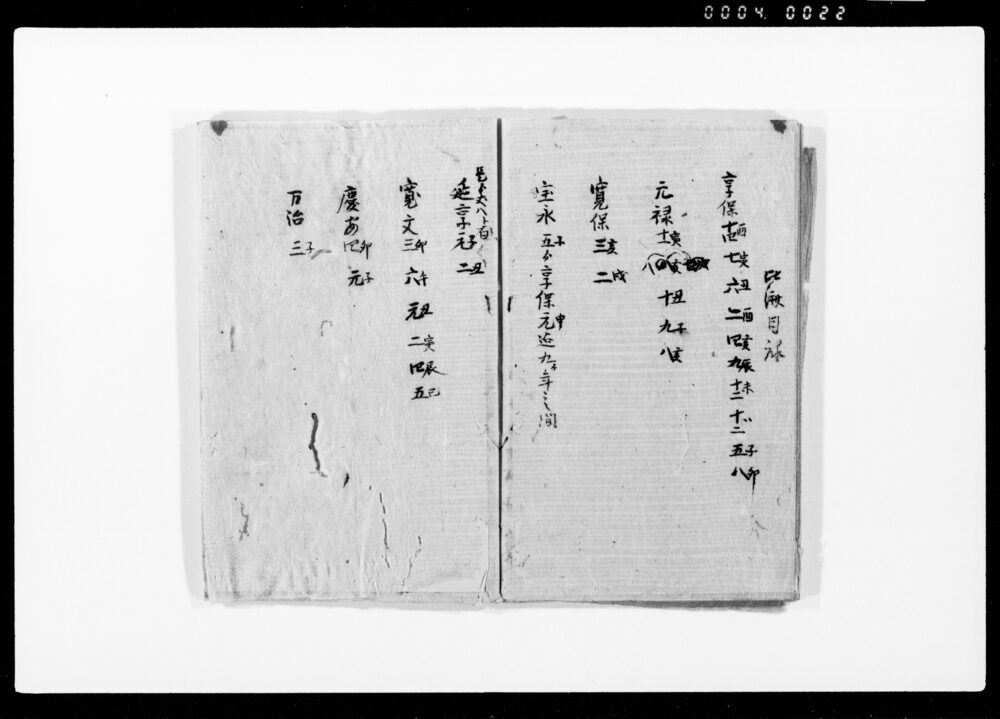 0004 0022
目録
享保 十四酉 七亥 六丑 二酉 四亥 九辰 十二未 十二 五子 八卯
元禄 十亥 八 十丑 九子 八亥
寛保 三亥 二戌
宝永 五子 享保元申 迄九ヶ年之間
延享元子 二丑
寛文 三卯 六午 元丑 二寅 四辰 五巳
慶安 四卯 元子
万治 三子